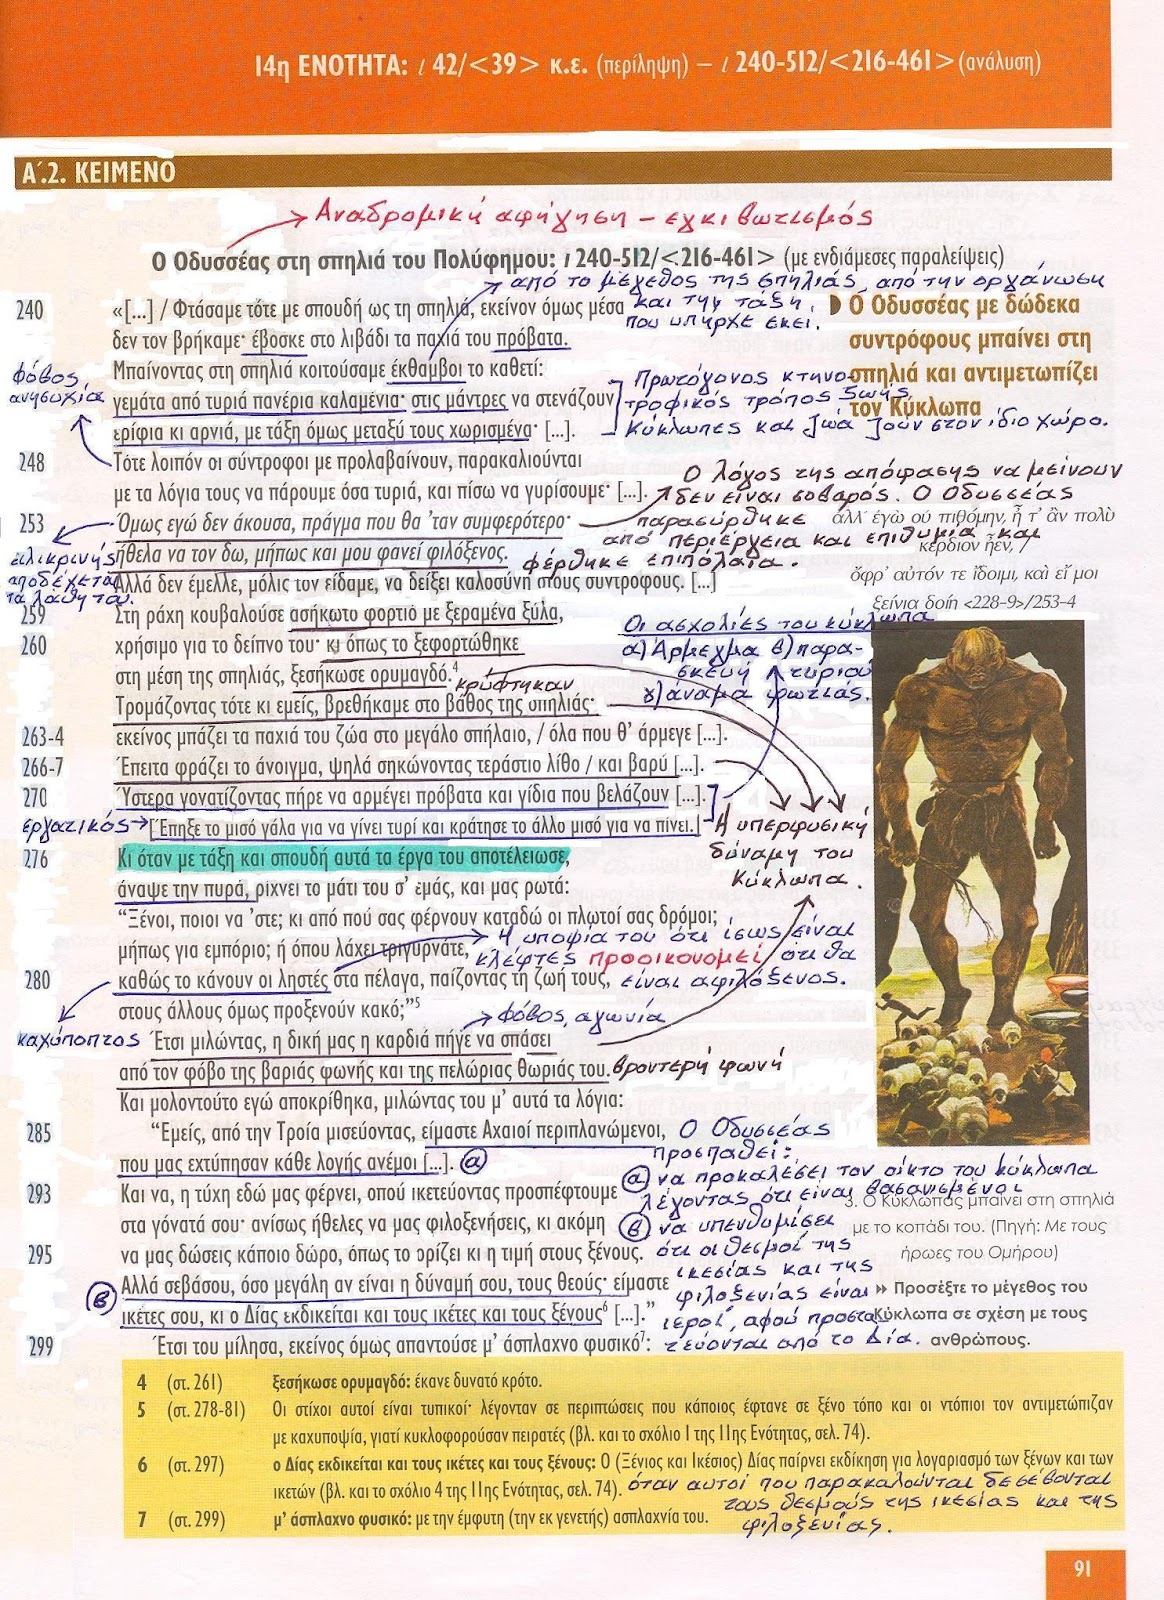 14η ΕΝΟΤΗΤΑ: ι 42/<39> κ.ε. (περίληψη) – ι 240-512/<216-461> (ανάλυση)
Α΄.2. ΚΕΙΜΕΝΟ
Αναδρομική αφήγηση – εγκιβωτισμός
Ο Οδυσσέας στη σπηλιά του Πολύφημου: ι 240-512/<216-461> (με ενδιάμεσες παραλείψεις)
από το μέγεθος της σπηλιάς, από την οργάνωση
και την τάξη
που υπήρχε εκεί.
240 «[...] / Φτάσαμε τότε με σπουδή ως τη σπηλιά, εκείνον όμως μέσα
δεν τον βρήκαμε· έβοσκε στο λιβάδι τα παχιά του πρόβατα.
Μπαίνοντας στη σπηλιά κοιτούσαμε έκθαμβοι το καθετί:
γεμάτα από τυριά πανέρια καλαμένια· στις μάντρες να στενάζουν
ερίφια κι αρνιά, με τάξη όμως μεταξύ τους χωρισμένα· [...].
Ο Οδυσσέας με δώδεκα
συντρόφους μπαίνει στη
σπηλιά και αντιμετωπίζει
τον Κύκλωπα
φόβος
ανησυχία
Πρωτόγονος κτηνο-
τροφικός τρόπος ζωής
Κύκλωπες και ζώα ζουν στον ίδιο χώρο.
248 Τότε λοιπόν οι σύντροφοι με προλαβαίνουν, παρακαλιούνται
με τα λόγια τους να πάρουμε όσα τυριά, και πίσω να γυρίσουμε· [...].
253 Όμως εγώ δεν άκουσα, πράγμα που θα ’ταν συμφερότερο·
ήθελα να τον δω, μήπως και μου φανεί φιλόξενος.
Αλλά δεν έμελλε, μόλις τον είδαμε, να δείξει καλοσύνη στους συντρόφους. [...]
Ο λόγος της απόφασης να μείνουν
δεν είναι σοβαρός. Ο Οδυσσέας
παρασύρθηκε
από περιέργεια και επιθυμία και
φέρθηκε επιπόλαια.
ειλικρινής
αποδέχεται
τα λάθη του.
ἀλλ’ ἐγὼ οὐ πιθόμην, ἦ τ’ ἂν πολὺ
κέρδιον ἦεν, /
ὄφρ’ αὐτόν τε ἴδοιμι, καὶ εἴ μοι
ξείνια δοίη <228-9>/253-4
259 Στη ράχη κουβαλούσε ασήκωτο φορτίο με ξεραμένα ξύλα,
260 χρήσιμο για το δείπνο του· κι όπως το ξεφορτώθηκε
στη μέση της σπηλιάς, ξεσήκωσε ορυμαγδό.4
κρύφτηκαν
Τρομάζοντας τότε κι εμείς, βρεθήκαμε στο βάθος της σπηλιάς·
263-4 εκείνος μπάζει τα παχιά του ζώα στο μεγάλο σπήλαιο, / όλα που θ’ άρμεγε [...].
266-7 Έπειτα φράζει το άνοιγμα, ψηλά σηκώνοντας τεράστιο λίθο / και βαρύ [...].
270 Ύστερα γονατίζοντας πήρε να αρμέγει πρόβατα και γίδια που βελάζουν [...].
εργατικός Έπηξε το μισό γάλα για να γίνει τυρί και κράτησε το άλλο μισό για να πίνει.
Οι ασχολίες του κύκλωπα
α) Άρμεγμα β) παρα-
σκευή τυριού
γ) άναμα φωτιάς.
Η υπερφυσική
δύναμη του
Κύκλωπα.
276 Κι όταν με τάξη και σπουδή αυτά τα έργα του αποτέλειωσε,
άναψε την πυρά, ρίχνει το μάτι του σ’ εμάς, και μας ρωτά:
“Ξένοι, ποιοι να ’στε; κι από πού σας φέρνουν καταδώ οι πλωτοί σας δρόμοι;
μήπως για εμπόριο; ή όπου λάχει τριγυρνάτε,
280 καθώς το κάνουν οι ληστές στα πέλαγα, παίζοντας τη ζωή τους,
στους άλλους όμως προξενούν κακό;”5
Η υποψία του ότι ίσως είναι
κλέφτες προοικονομεί ότι θα
είναι αφιλόξενος.
καχύποπτος
φόβος, αγωνία
Έτσι μιλώντας, η δική μας η καρδιά πήγε να σπάσει
από τον φόβο της βαριάς φωνής και της πελώριας θωριάς του. βροντερή φωνή
Και μολοντούτο εγώ αποκρίθηκα, μιλώντας του μ’ αυτά τα λόγια:
285 “Εμείς, από την Τροία μισεύοντας, είμαστε Αχαιοί περιπλανώμενοι,
που μας εχτύπησαν κάθε λογής ανέμοι [...]. α
293 Και να, η τύχη εδώ μας φέρνει, οπού ικετεύοντας προσπέφτουμε
στα γόνατά σου· ανίσως ήθελες να μας φιλοξενήσεις, κι ακόμη
295 να μας δώσεις κάποιο δώρο, όπως το ορίζει κι η τιμή στους ξένους.
β Αλλά σεβάσου, όσο μεγάλη αν είναι η δύναμή σου, τους θεούς· είμαστε
ικέτες σου, κι ο Δίας εκδικείται και τους ικέτες και τους ξένους6 [...].”
299 Έτσι του μίλησα, εκείνος όμως απαντούσε μ’ άσπλαχνο φυσικό7:
Ο Οδυσσέας
προσπαθεί:
α να προκαλέσει τον οίκτο του κύκλωπα
λέγοντας ότι είναι βασανισμένοι
β να υπενθυμίσει
ότι οι θεσμοί της
ικεσίας και της
φιλοξενίας είναι
ιεροί, αφού προστα-
τεύονται από το Δία.
3. Ο Κύκλωπας μπαίνει στη σπηλιά
με το κοπάδι του. (Πηγή: Με τους
ήρωες του Ομήρου)
Προσέξτε το μέγεθος του
Κύκλωπα σε σχέση με τους
ανθρώπους.
4 (στ. 261) ξεσήκωσε ορυμαγδό: έκανε δυνατό κρότο.
5 (στ. 278-81) Οι στίχοι αυτοί είναι τυπικοί· λέγονταν σε περιπτώσεις που κάποιος έφτανε σε ξένο τόπο και οι ντόπιοι τον αντιμετώπιζαν
με καχυποψία, γιατί κυκλοφορούσαν πειρατές (βλ. και το σχόλιο 1 της 11ης Ενότητας, σελ. 74).
6 (στ. 297) ο Δίας εκδικείται και τους ικέτες και τους ξένους: Ο (Ξένιος και Ικέσιος) Δίας παίρνει εκδίκηση για λογαριασμό των ξένων και των
ικετών (βλ. και το σχόλιο 4 της 11ης Ενότητας, σελ. 74). όταν αυτοί που παρακαλούνται δε σέβονται
τους θεσμούς της ικεσίας και της
φιλοξενίας.
7 (στ. 299) μ’ άσπλαχνο φυσικό: με την έμφυτη (την εκ γενετής) ασπλαχνία του.
91